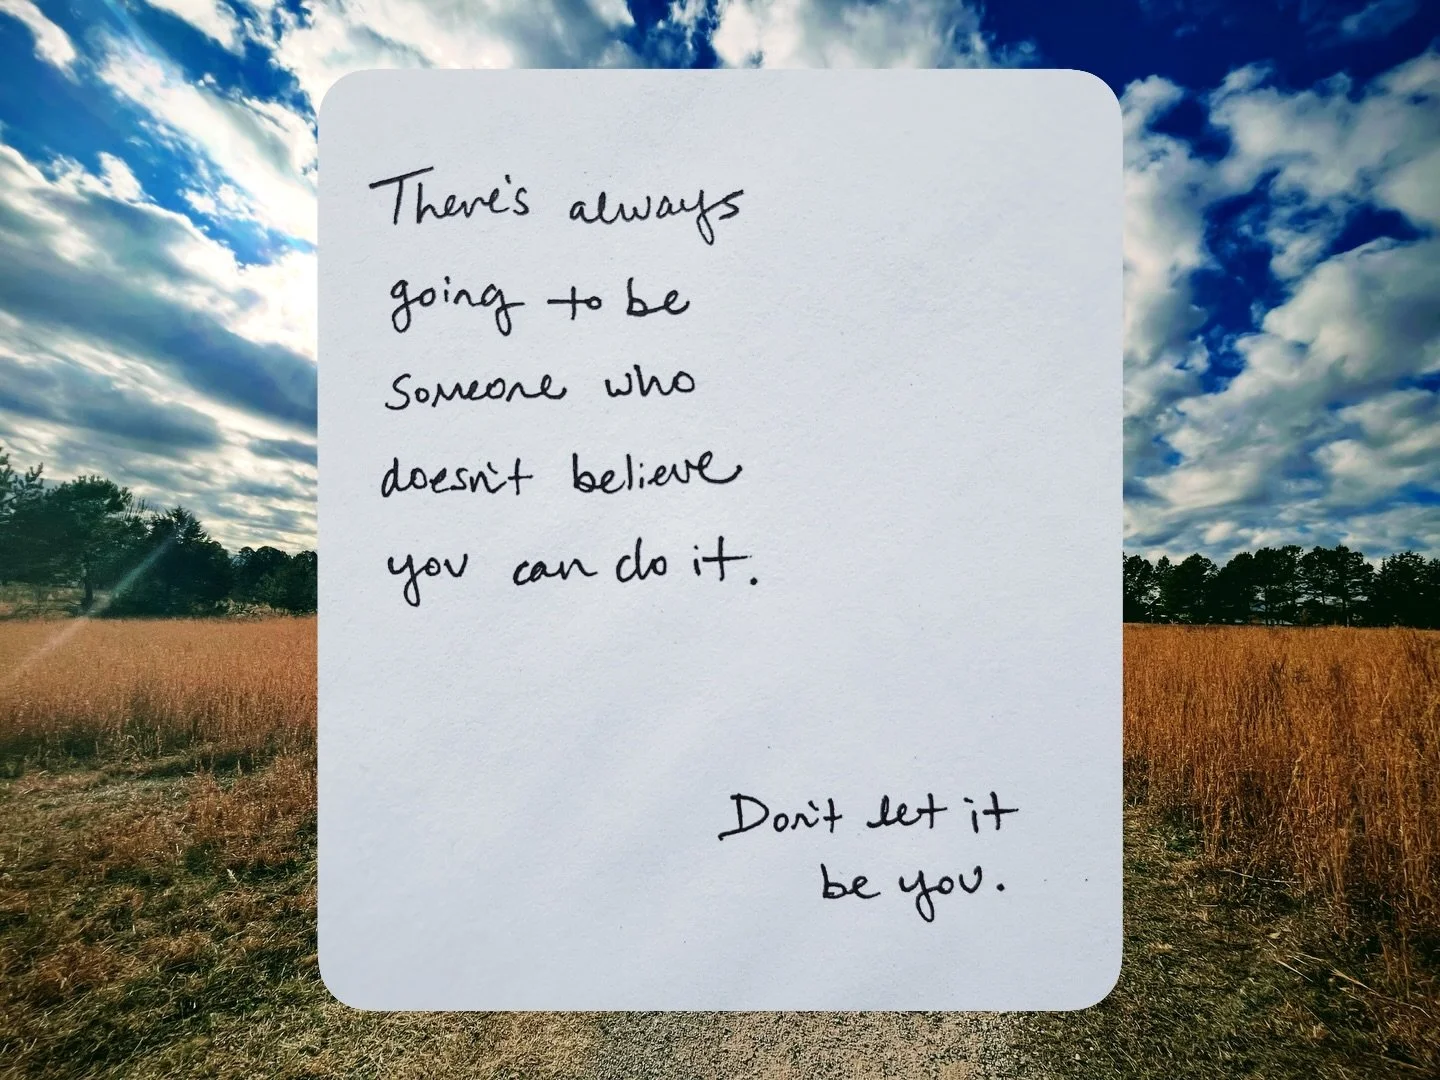 There's always
going to be
someone who
doesn't believe
you can do it.
Don't let it
be you.